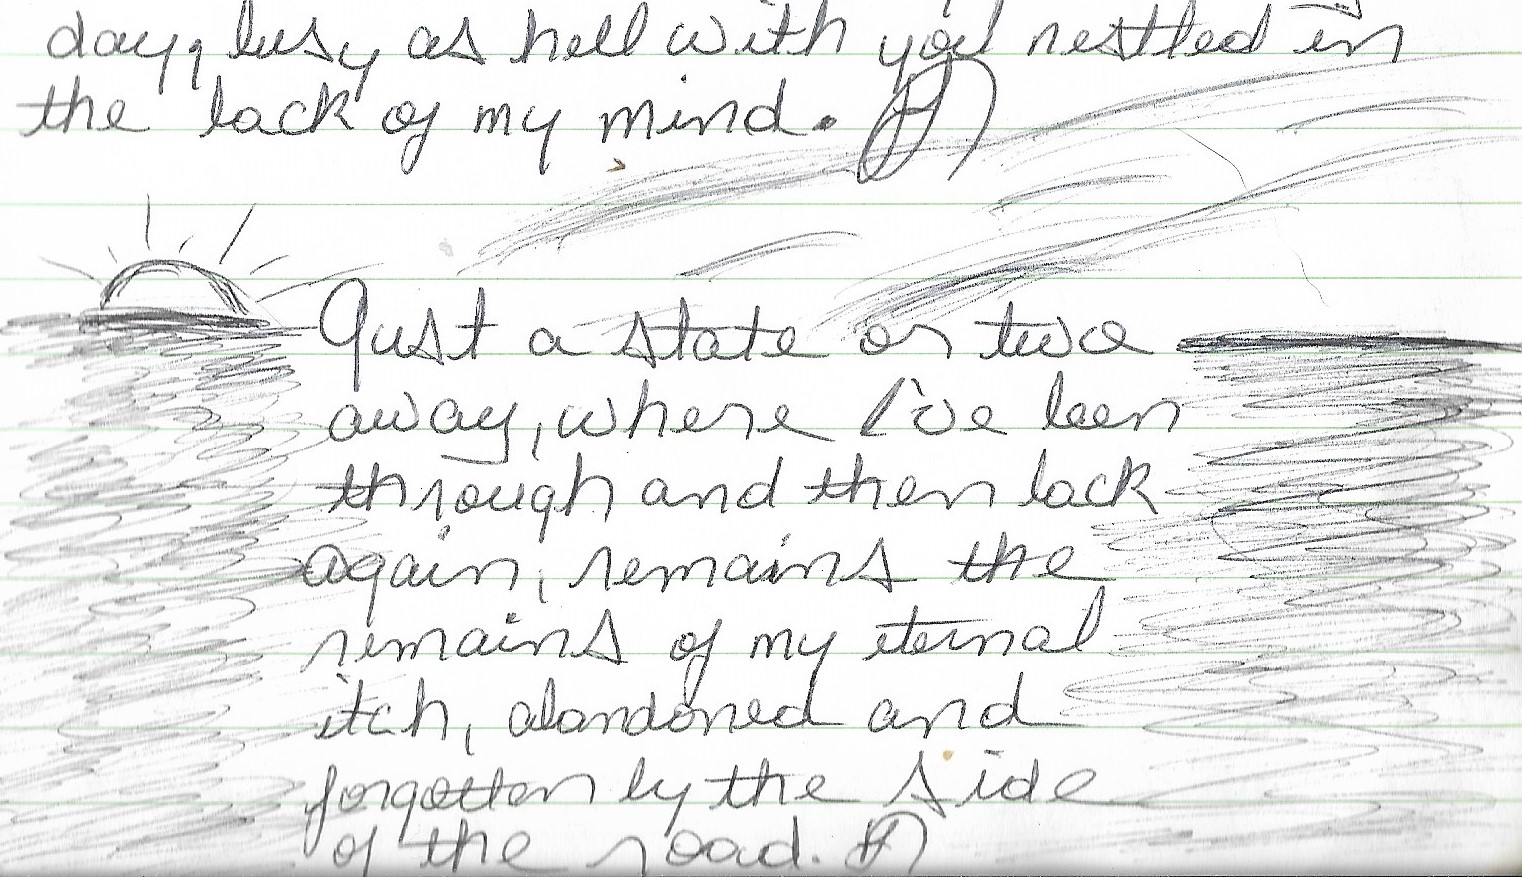 day, busy as hell with you nestled in
the back of my mind.
Just a state or two
away, where I've been
through and then back
again, remains the
remains of my eternal
itch, abandoned and
forgotten by the side
of the road.